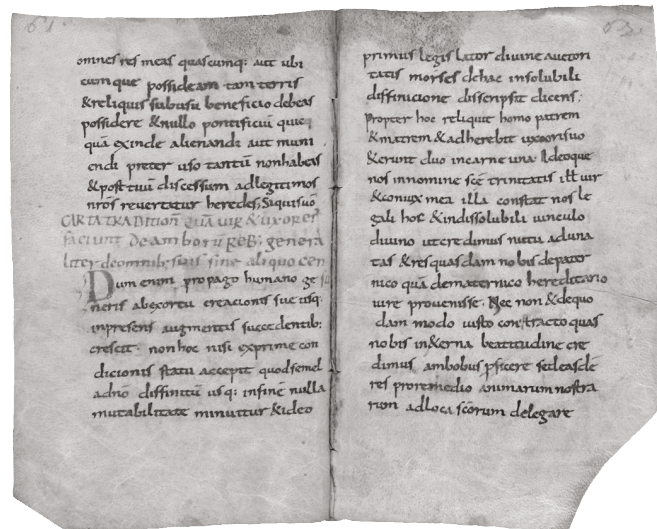 61.
omnes res meas quascumq: aut ubi
cumque possideam tam terris
&reliquis subusu beneficio debeas
possidere &nullo pontificiũ quicq
quã exinde alienandi aut muni
endi preter uso tantũ nonhabeas
&post tuũ discessum adlegitimos
nrõs revertatur heredes; Siquisuo
CARTA TRADITIOÑ QUÃ UIR & UXOR EI
faciunt de amborũ REB; genera
liter deomnib; suis sine aliquo cen
Dum enim propago humano ge
neris abexortu creacionis sue usq:
inpresens augmentis succedentib:
crescit. nonhoc nisi exprime con
dicionis statu accepit quodsemel
adnõ diffinitũ usq: infinẽ nulla
mutabilitate minuitur &ideo
63.
primus legis lator divine auctori
tatis moises dehac insolubili
diffinicione disseripsit dicens;
propter hoc reliquit homo patrem
&matrem &adherebit uxorisuo
&erunt duo incarne una Ideoque
nos innomine scẽ trinitatis ill̃ uir
&coniux mea illa constat nos le
gali hoc &indissolubili uinculo
divino ut credimus nutu aduna
tas &res quasdam nobis depater
nico quã dematernico hereditario
iure provenisse. Nec non &dequo
dam modo iusto contracto quas
nobis in&erna beatitudine cre
dimus ambobus pficere sedeasdẽ
res proremedio animarum nostra
rum adloca scõrum delegare